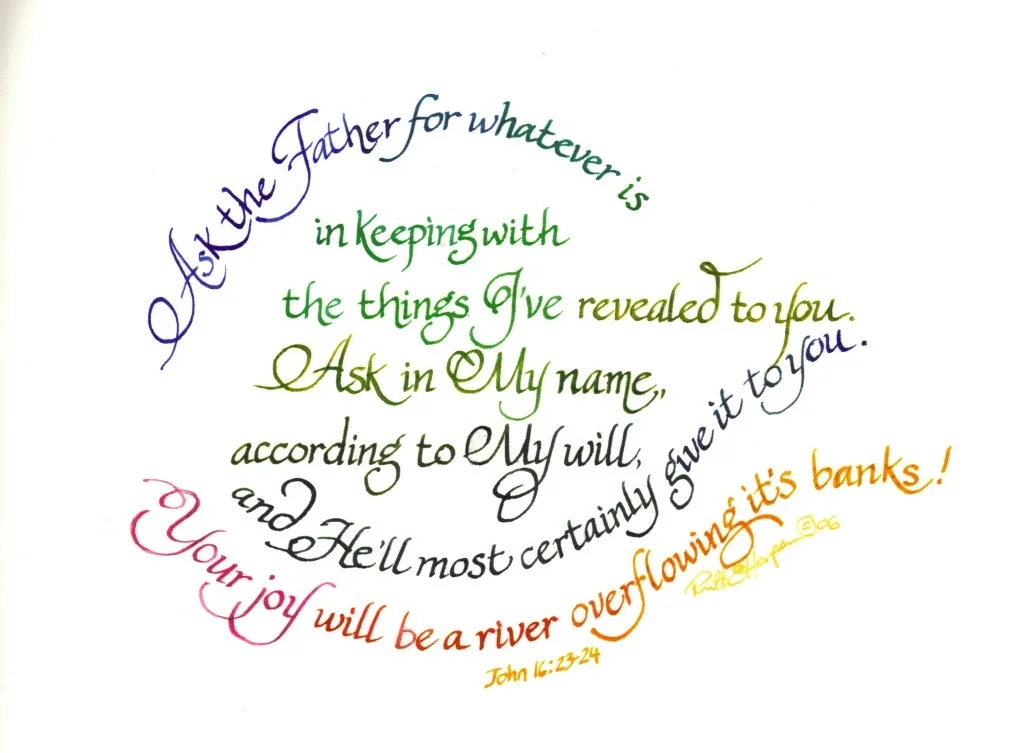 Ask the Father for whatever is
in keeping with
the things I've revealed to you.
Ask in My name,,
according to My will,
and He'll most certainly give it to you.
Your joy will be a river overflowing it's banks!
© 06
John 16:23-24